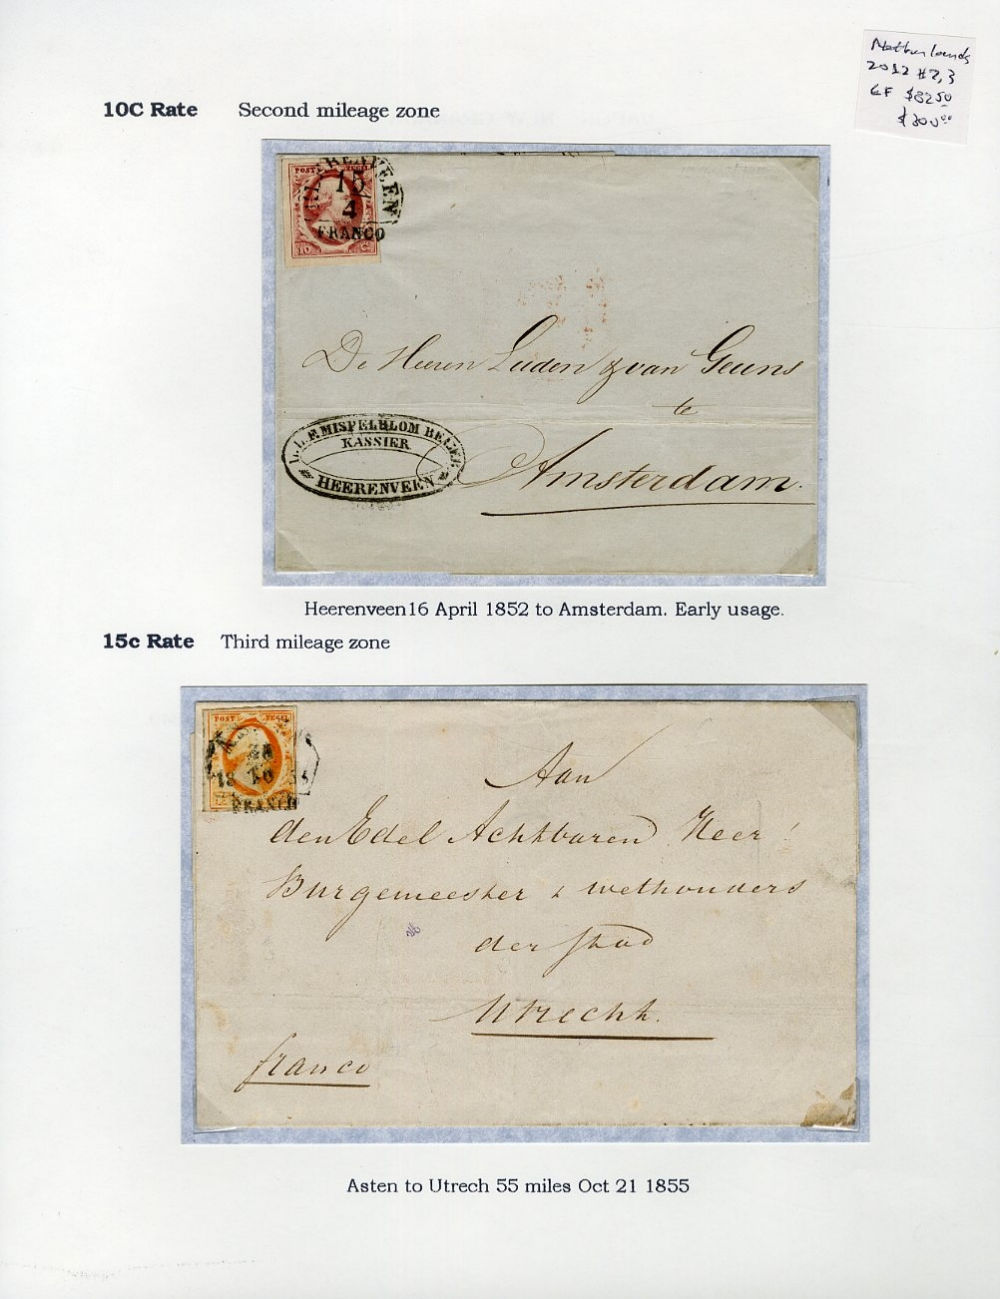 Netherlands
2012 #2,3
$8250
$30000
10C Rate Second mileage zone
POST
HEERENVEEN
15
4
FRANCO
10 C
De Heeren Luden & van Geuns
te
Amsterdam.
MISPELBLOM
KASSIER
HEERENVEEN
Heerenveen16 April 1852 to Amsterdam. Early usage.
15c Rate Third mileage zone
POST ZEGEL
18
FRANCO
Aan
den Edel Achtbaren Heer
Burgemeester & wethouders
der Stad
Utrecht.
franco
Asten to Utrech 55 miles Oct 21 1855